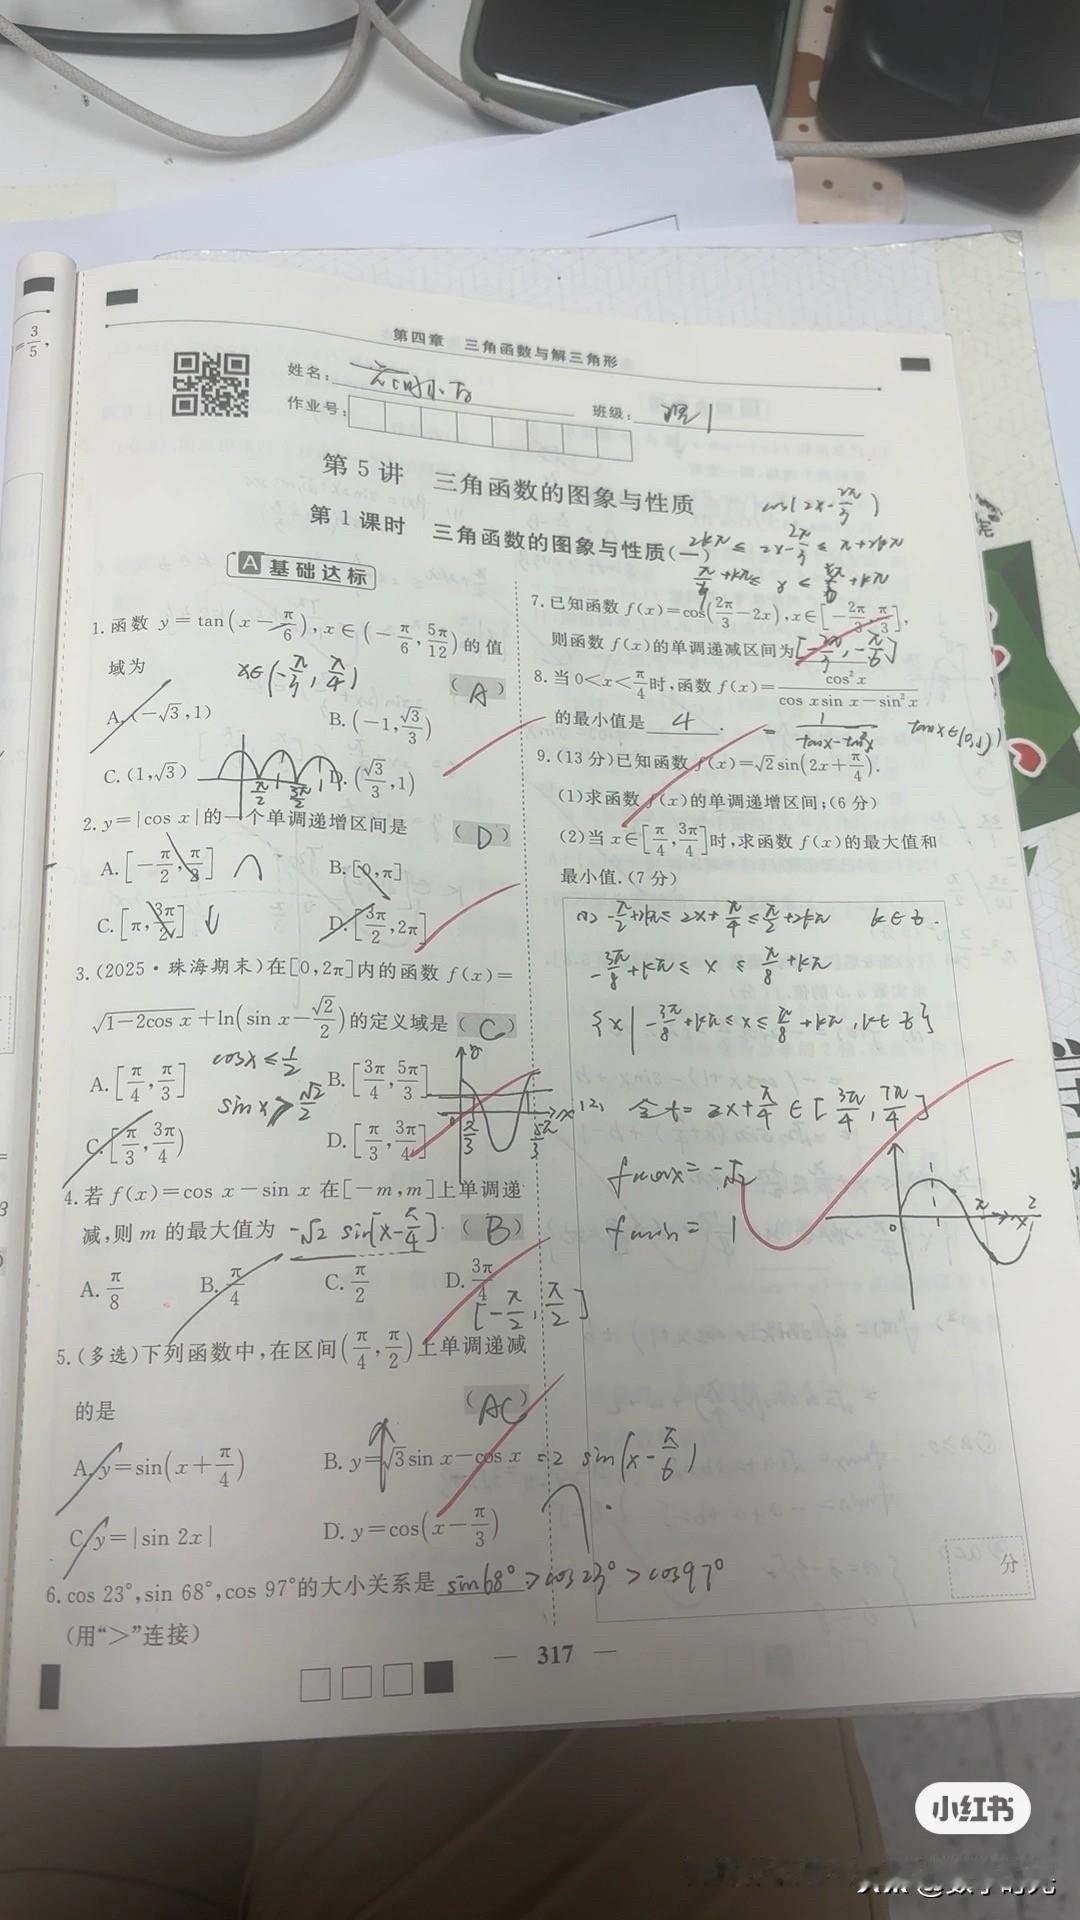 =3/5,
第四章 三角函数与解三角形
姓名：
作业号：
班级：
第5讲 三角函数的图象与性质
第1课时 三角函数的图象与性质(一)
cos(2x-2π/3)
2kπ ≤ 2x-2π/3 ≤ π+2kπ
A 基础达标
1.函数 y=tan(x-π/6),x∈(-π/6,5π/12)的值
域为
x∈(-π/3,π/4)
(A)
A.(-√3,1)
B.(-1,√3/3)
C.(1,√3)
D.(√3/3,1)
π/2 3π/2
2.y=|cos x|的一个单调递增区间是 (D)
A.[-π/2,π/2]
B.[0,π]
C.[π,3π/2]
D.[3π/2,2π]
3.(2025·珠海期末)在[0,2π]内的函数 f(x)=
√(1-2cos x)+ln(sin x-√2/2)的定义域是(C)
cosx≤1/2
sinx>√2/2
A.[π/4,π/3]
B.[3π/4,5π/3]
C.[π/3,3π/4)
D.[π/3,3π/4]
4.若 f(x)=cos x-sin x 在[-m,m]上单调递
减,则 m 的最大值为 -√2 sin[x-π/4] (B)
A.π/8
B.π/4
C.π/2
D.3π/4
[-π/2,π/2]
5.(多选)下列函数中,在区间(π/4,π/2)上单调递减
的是 (AC)
A.y=sin(x+π/4)
B.y=√3sin x-cos x =2 sin(x-π/6)
C.y=|sin 2x|
D.y=cos(x-π/3)
6.cos 23°,sin 68°,cos 97°的大小关系是 sin68°>cos23°>cos97°
(用“>”连接)
7.已知函数 f(x)=cos(2π/3-2x),x∈[-2π/3,π/3],
则函数 f(x)的单调递减区间为[-2π/3,-π/6]
8.当0<x<π/4时,函数 f(x)=cos²x/(cos xsin x-sin²x)
的最小值是 4 .
=1/(tanx-tan²x) tanx∈(0,1)
9.(13分)已知函数 f(x)=√2sin(2x+π/4).
(1)求函数 f(x)的单调递增区间;(6分)
(2)当 x∈[π/4,3π/4]时,求函数 f(x)的最大值和
最小值.(7分)
(1) -π/2+2kπ≤2x+π/4≤π/2+2kπ k∈Z.
-3π/8+kπ≤x≤π/8+kπ
{x|-3π/8+kπ≤x≤π/8+kπ,k∈Z}
(2) 令t=2x+π/4∈[3π/4,7π/4]
fmax=-√2
fmin=1
分
317
小红书